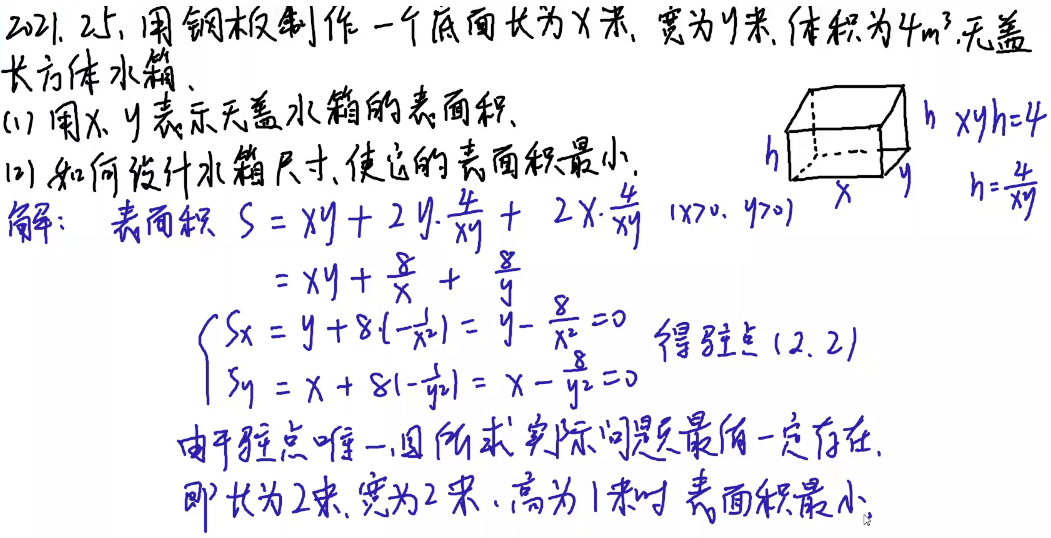 2021. 25. 用钢板制作一个底面长为x米, 宽为y米, 体积为4m³, 无盖
长方体水箱.
(1) 用x、y表示无盖水箱的表面积.
(2) 如何设计水箱尺寸、使它的表面积最小.
h
x
y
h
xyh=4
h=4/xy
解: 表面积 S = xy + 2y·4/xy + 2x·4/xy (x>0, y>0)
= xy + 8/x + 8/y
{ Sx = y + 8·(-1/x²) = y - 8/x² = 0
Sy = x + 8(-1/y²) = x - 8/y² = 0
得驻点 (2, 2)
由于驻点唯一, 且所求实际问题最值一定存在.
即长为2米, 宽为2米, 高为1米时 表面积最小.